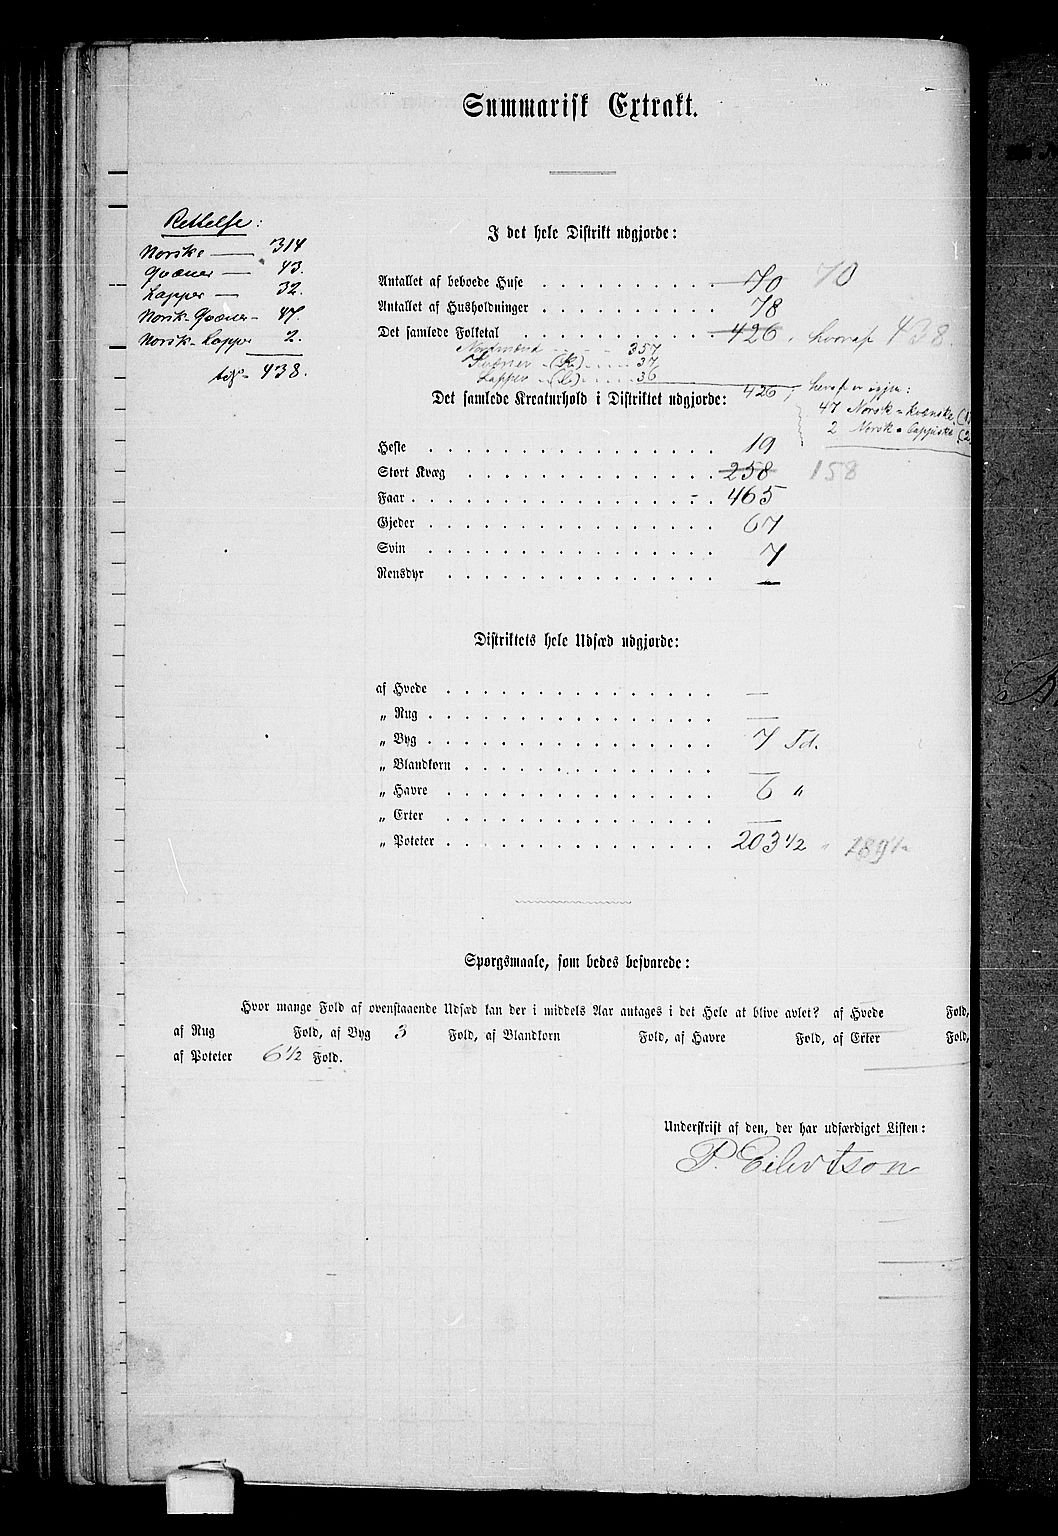 Summarisk Extrakt.
Rettelse:
Norske — 314
Qvæner — 43.
Lapper — 32.
Norsk-Qvæner - 47.
Norsk-Lapper 2.
438.
I det hele Distrikt udgjorde:
Antallet af beboede Huse 70 70
Antallet af Husholdninger 78
Det samlede Folketal 426. hvoraf 438.
Nordmænd 357
Kvæner (K) 37
Lapper (L) 36
426, heraf er igjen:
47 Norsk-kvenske (1)
2 Norsk-lappiske (2)
Det samlede Kreaturhold i Distriktet udgjorde:
Heste 19
Stort Kvæg 258 158
Faar 465
Gjeder 67
Svin 7
Rensdyr —
Distriktets hele Udsæd udgjorde:
af Hvede —
„ Rug —
„ Byg 7 Td.
„ Blandkorn —
„ Havre 6 "
„ Erter —
„ Poteter 203 1/2 "
Spørgsmaale, som bedes besvarede:
Hvor mange Fold af ovenstaaende Udsæd kan der i middels Aar antages i det Hele at blive avlet? af Hvede Fold,
af Rug Fold, af Byg 3 Fold, af Blandkorn Fold, af Havre Fold, af Erter Fold,
af Poteter 6 1/2 Fold.
Underskrift af den, der har udfærdiget Listen:
P. Eilertson